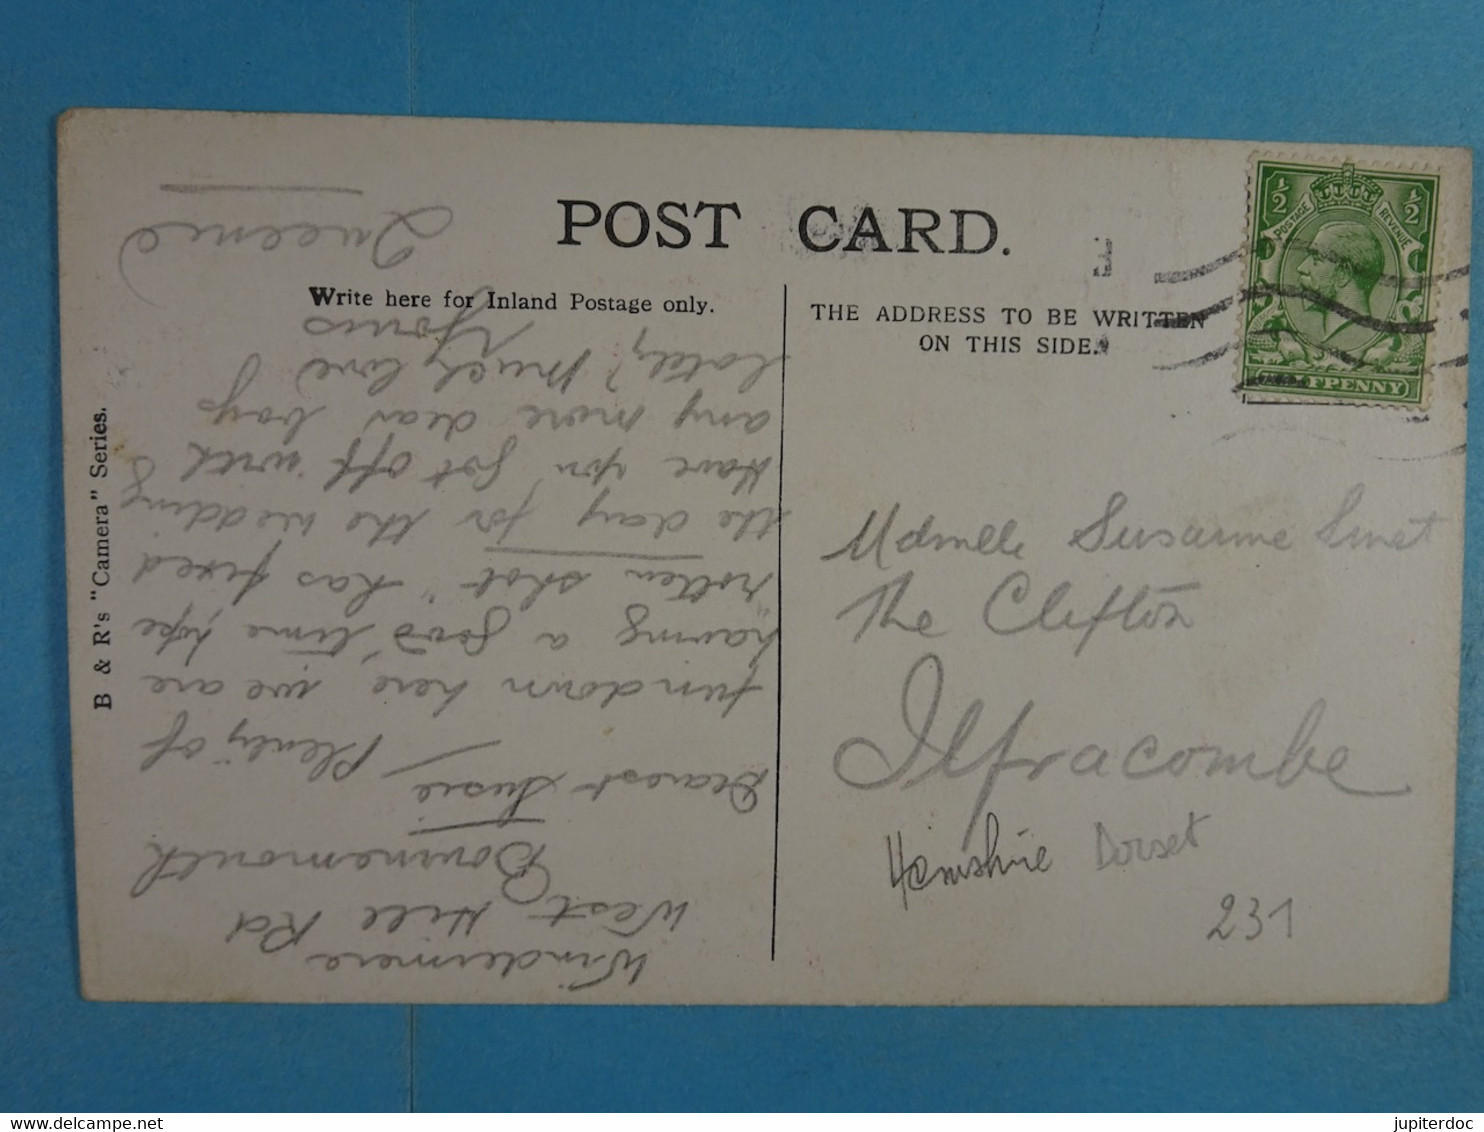 POST CARD.
Write here for Inland Postage only.
THE ADDRESS TO BE WRITTEN
ON THIS SIDE.
B & R's "Camera" Series.
½ ½
POSTAGE REVENUE
HALFPENNY
Windermere
West Hill Rd
Bournemouth
Dearest Susie, Plenty of
fun down here, we are
having a good time hope
"rotten shot" has fixed
the day for the wedding
Have you got off with
any more dear boys
lately? Much love
Yours
Queenie
Mdmelle Susanne
The Clifton
Ilfracombe
Hamshire Dorset
231
www.delcampe.net
jupiterdoc